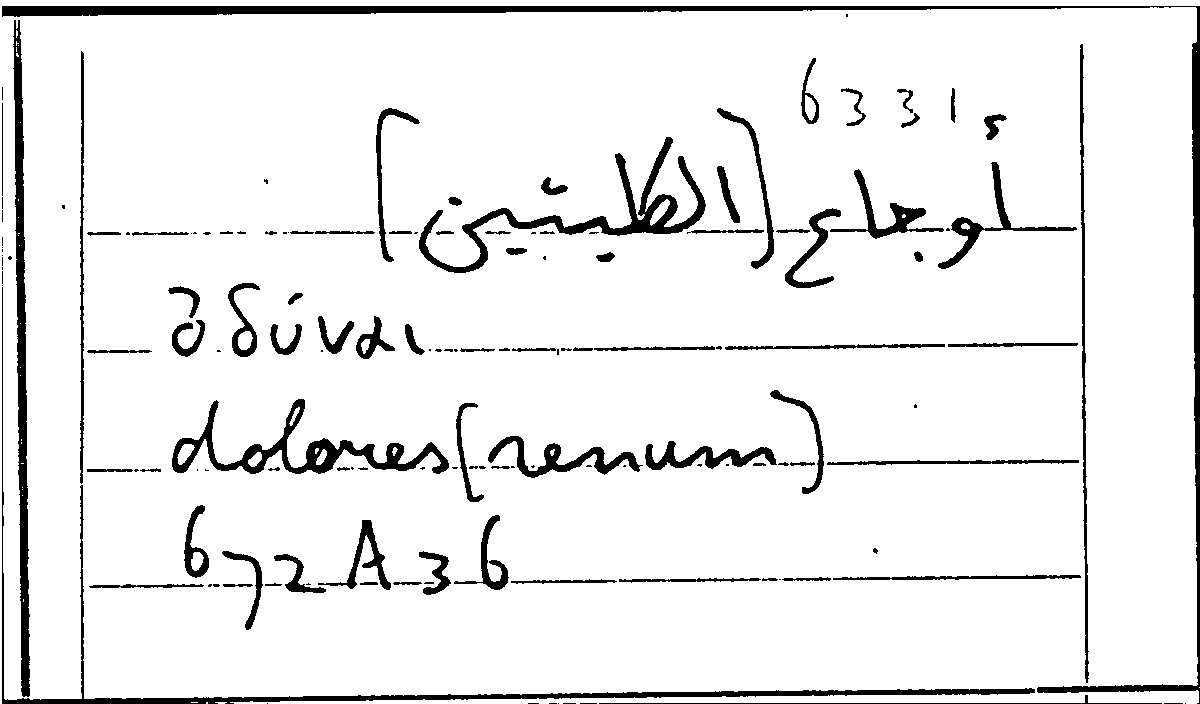 6331
أوجاع [الكليتين]
ὀδύναι
dolores [renum]
672A36